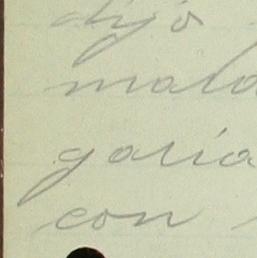 dijo
mala
garia
con